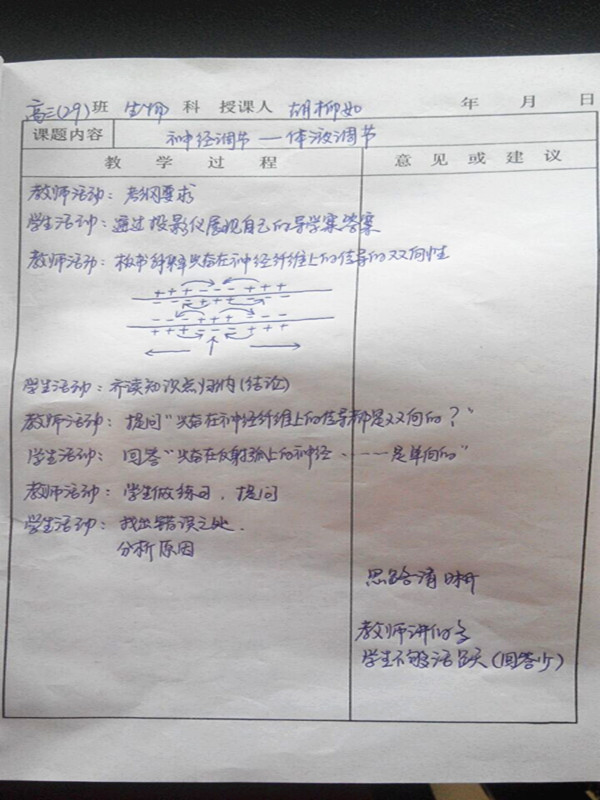 高三(29)班 生物 科 授课人 胡柳如 年 月 日
课题内容 神经调节—体液调节
教学过程 意见或建议
教师活动：考纲要求
学生活动：通过投影仪展现自己的导学案答案
教师活动：板书 兴奋在神经纤维上的传导的双向性
+ + + - - - + + +
- - - + + + - - -
- - - + + + - - -
+ + + - - - + + +
学生活动：齐读知识点归纳(结论)
教师活动：提问"兴奋在神经纤维上的传导都是双向的？"
学生活动：回答"兴奋在反射弧上的神经……是单向的"
教师活动：学生做练习，提问
学生活动：找出错误之处.
分析原因
思路清晰
教师讲的多
学生不够活跃(回答少)